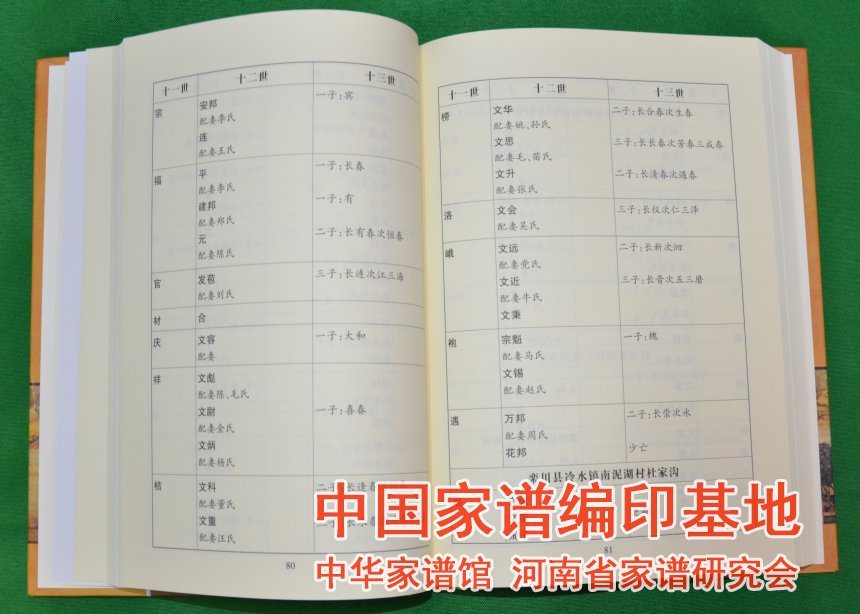 十一世 十二世 十三世
宗 安邦 一子:宾
配妻李氏
连
配妻王氏
福 平 一子:长春
配妻李氏
建邦 一子:有
配妻郑氏
元 二子:长有春次恒春
配妻陈氏
官 发苞 三子:长连次江三海
配妻刘氏
材 合
庆 文容 一子:太和
配妻
祥 文彪
配妻陈、毛氏
文尉 一子:喜春
配妻金氏
文炳
配妻杨氏
桔 文科 二子:长逢春
配妻董氏
文重
配妻汪氏
80
十一世 十二世 十三世
榜 文华 二子:长合春次生春
配妻姚、孙氏
文思 三子:长长春次芳春三成春
配妻毛、苗氏
文升 二子:长清春次通春
配妻张氏
洛 文会 三子:长仪次仁三泽
配妻吴氏
峨 文远 二子:长新次泗
配妻党氏
文近 三子:长晋次五三磨
配妻牛氏
文秉
袍 宗魁 一子:槐
配妻马氏
文锡
配妻赵氏
遇 万邦 二子:长崇次永
配妻周氏
花邦 少亡
栾川县冷水镇南泥湖村杜家沟
81
中国家谱编印基地
中华家谱馆 河南省家谱研究会